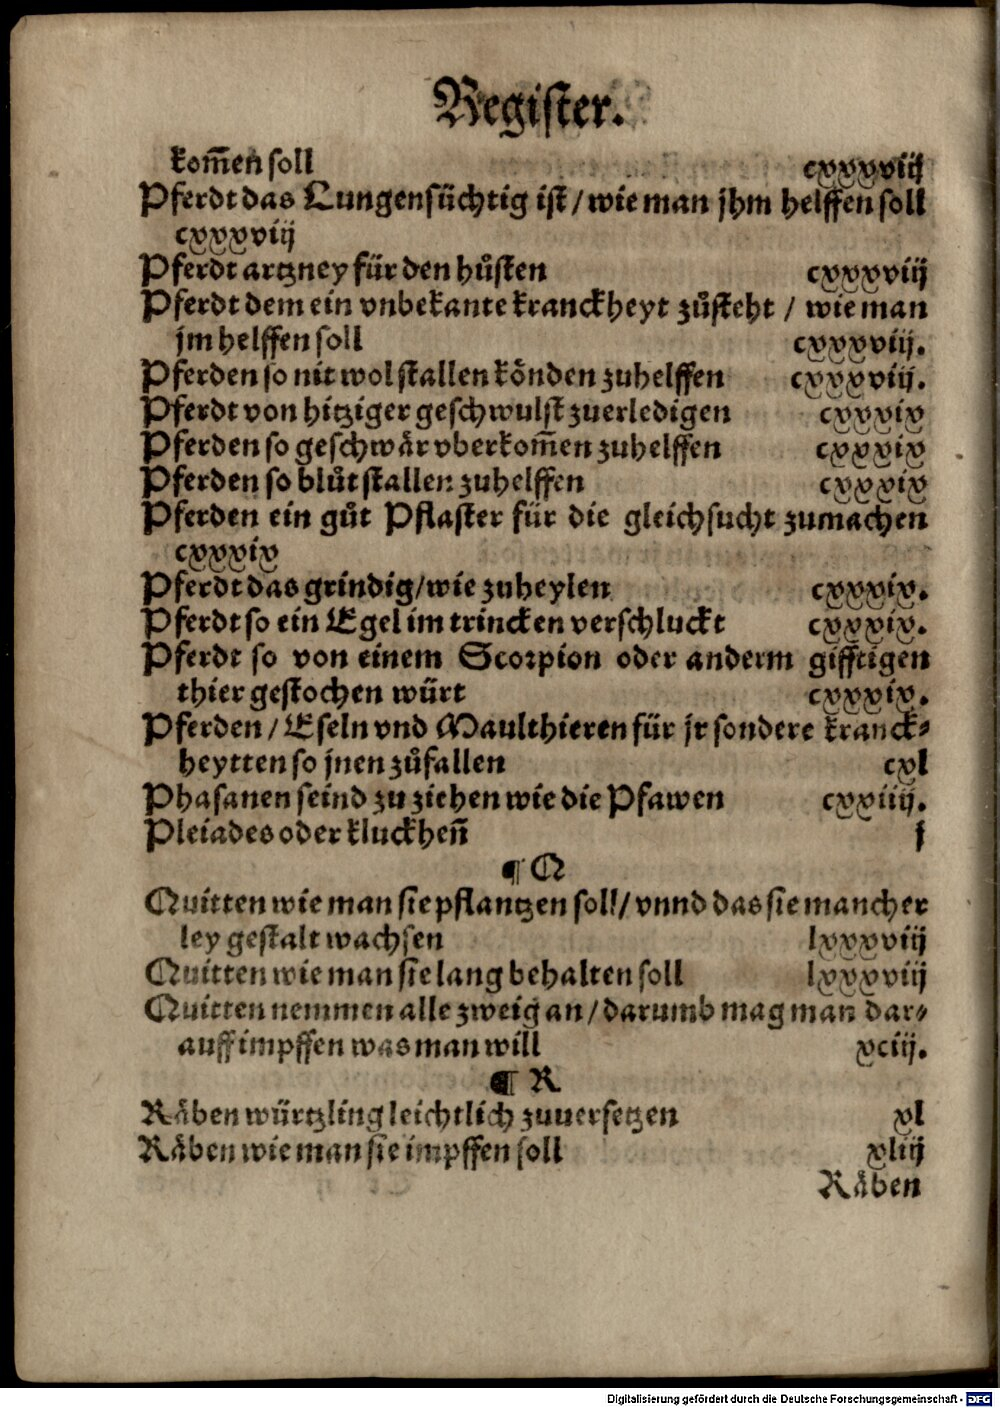 Register.
kom̄en soll cxxxviij
Pferdt das Lungensüchtig ist / wie man jhm helffen soll
cxxxviij
Pferdt artzney für den hůsten cxxxviij
Pferdt dem ein vnbekante kranckheyt zůsteht / wie man
jm helffen soll cxxxviij.
Pferden so nit wol stallen könden zuhelffen cxxxviij.
Pferdt von hitziger geschwulst zuerledigen cxxxix
Pferden so geschwär vberkom̄en zuhelffen cxxxix
Pferden so blůt stallen zuhelffen cxxxix
Pferden ein gůt Pflaster für die gleichsucht zumachen
cxxxix
Pferdt das grindig / wie zuheylen cxxxix.
Pferdt so ein Egel im trincken verschluckt cxxxix.
Pferdt so von einem Scorpion oder anderm gifftigen
thier gestochen würt cxxxix.
Pferden / Eseln vnd Maulthieren für jr sondere kranck⸗
heytten so jnen zůfallen cxl
Phasanen seind zu ziehen wie die Pfawen cxxiiij.
Pleiades oder kluckhen̄ j
¶ Q
Quitten wie man sie pflantzen soll / vnnd das sie mancher
ley gestalt wachsen lxxxviij
Quitten wie man sie lang behalten soll lxxxviij
Quitten nemmen alle zweig an / darumb mag man dar⸗
auff impffen was man will xciij.
¶ R
Räben würtzling leichtlich zuuersetzen xl
Räben wie man sie impffen soll xliij
Räben
Digitalisierung gefördert durch die Deutsche Forschungsgemeinschaft - DFG